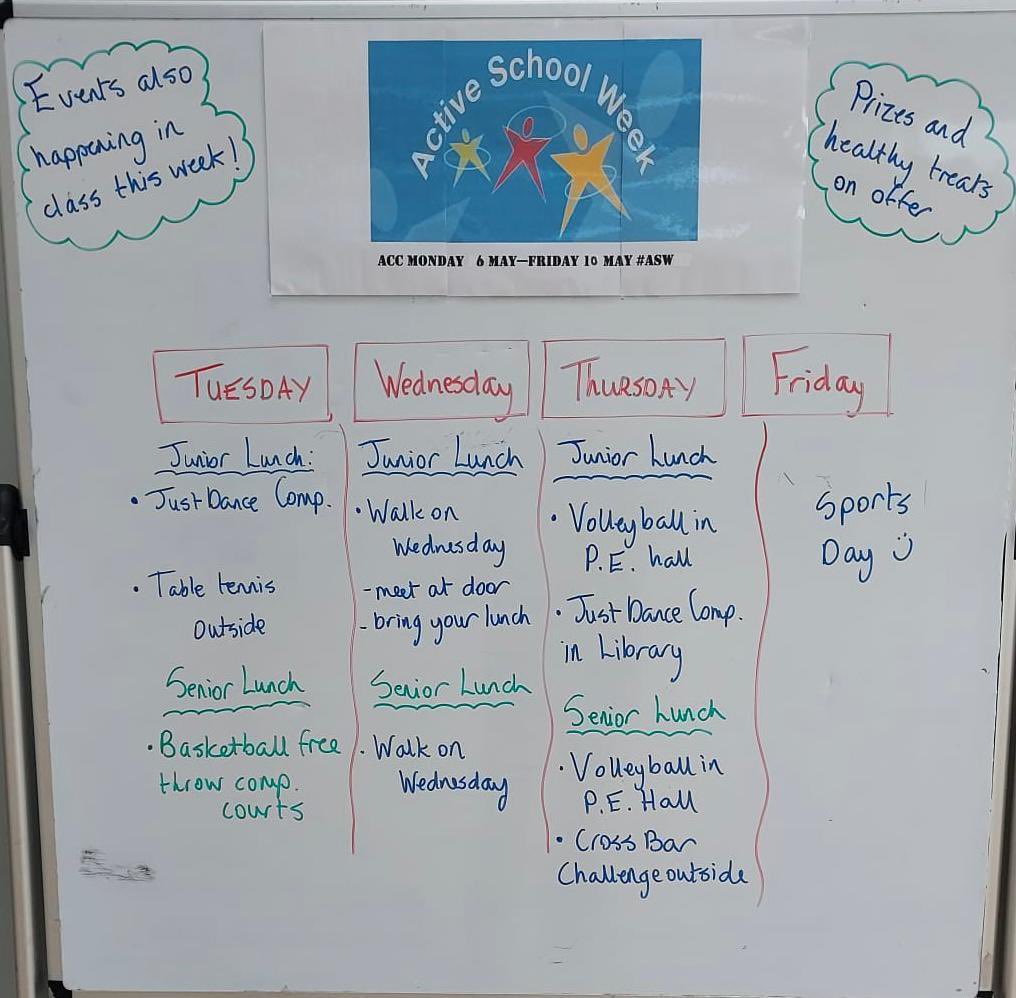 Events also
happening in
class this week!
Active School Week
ACC MONDAY 6 MAY—FRIDAY 10 MAY #ASW
Prizes and
healthy treats
on offer
TUESDAY
Junior Lunch:
• Just Dance Comp.
• Table tennis
outside
Senior Lunch
• Basketball free
throw comp.
courts
Wednesday
Junior Lunch
• Walk on
Wednesday
- meet at door
- bring your lunch
Senior Lunch
• Walk on
Wednesday
THURSDAY
Junior Lunch
• Volleyball in
P.E. hall
• Just Dance Comp.
in Library
Senior Lunch
• Volleyball in
P.E. Hall
• Cross Bar
Challenge outside
Friday
Sports
Day